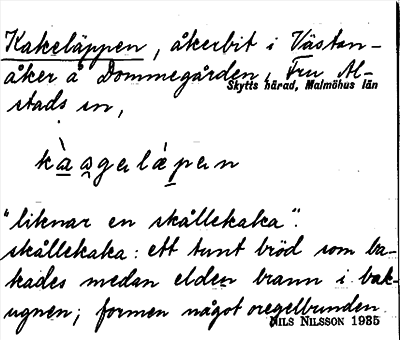 Kakeläppen, åkerbit i Västan-
åker å Dommegården, Fru Al-
Skytts härad, Malmöhus län
stads sn,
"liknar en skållekaka".
skållekaka: ett tunt bröd som ba-
kades medan elden brann i bak-
ugnen; formen något oregelbunden.
NILS NILSSON 1985